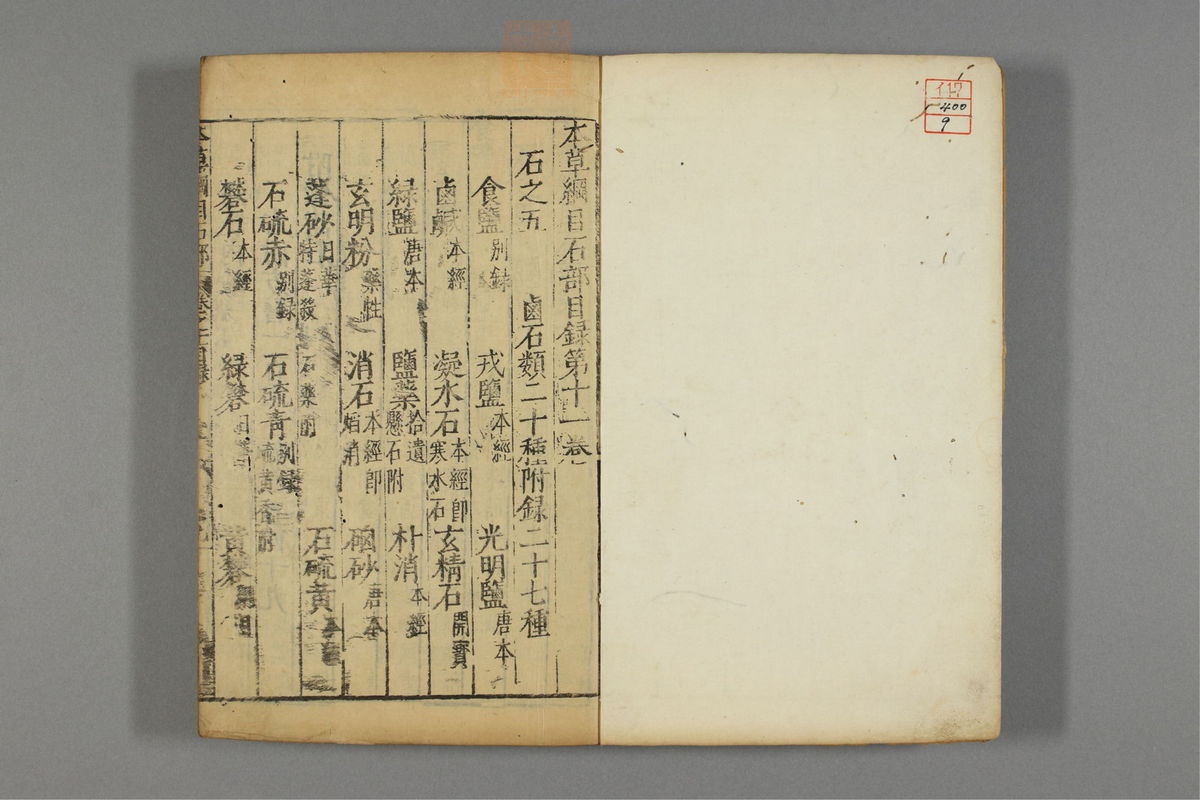 117
400
9
本草綱目石部目録第十一卷
石之五　鹵石類二十種附録二十七種
食鹽別録　戎鹽本經　光明鹽唐本
鹵鹹本經　凝水石本經即寒水石　玄精石開寶
緑鹽唐本　鹽藥拾遺懸石附　朴消本經
玄明粉藥性　消石本經即焰消　硇砂唐本
蓬砂日華特蓬殺石藥附　石硫黄本
石硫赤別録　石硫青別録硫黄香附
礬石本經　緑礬日華　黄礬
本草綱目石部